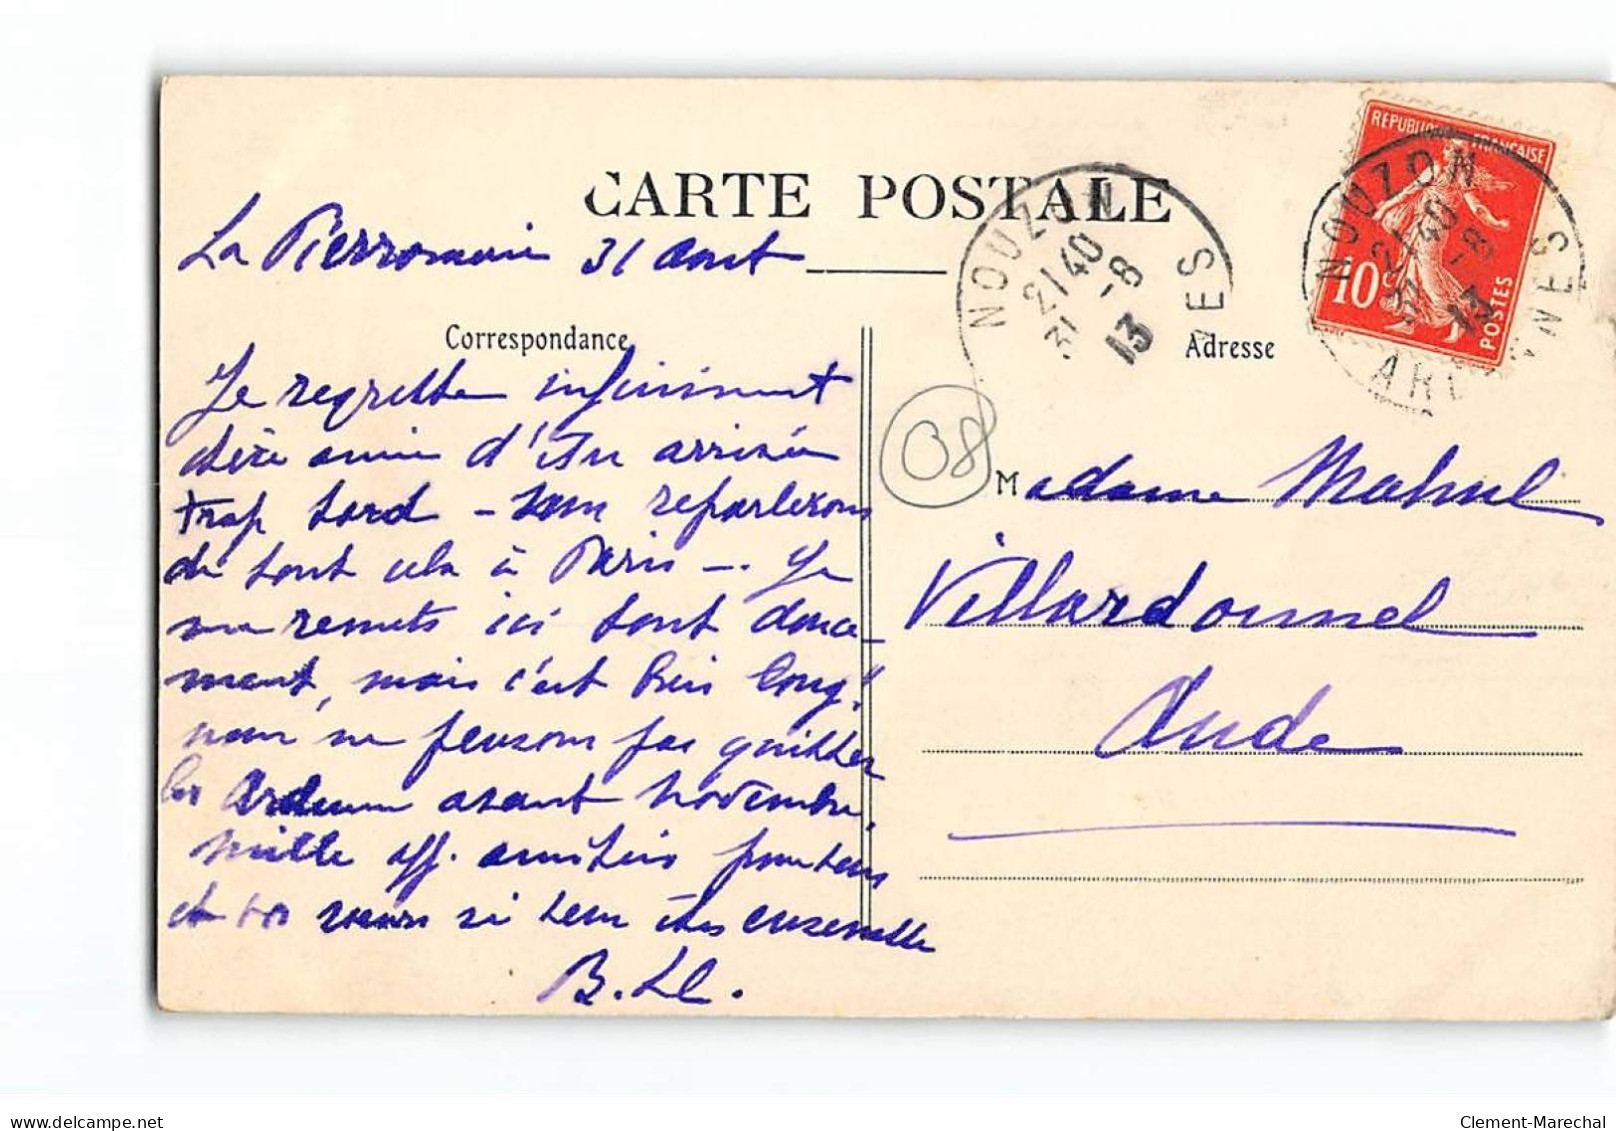 CARTE POSTALE
La Pierronnerie 31 Aout
Correspondance
Je regrette infiniment
chère amie d'être arrivée
trop tard – nous reparlerons
de tout cela à Paris –. Je
me remets ici tout douce-
ment, mais c'est bien long,
nous ne pensons pas quitter
les Ardennes avant novembre.
mille aff. amitiés pour vous
et vos sœurs si vous êtes ensemble
NOUZON
21 40
31 -8
13
ES
Adresse
08
REPUBLIQUE FRANÇAISE
10
POSTES
NOUZON
21 40
31 -8
13
ARDENNES
Madame Mahul
Villardonnel
Aude
delcampe.net
Clement-Marechal